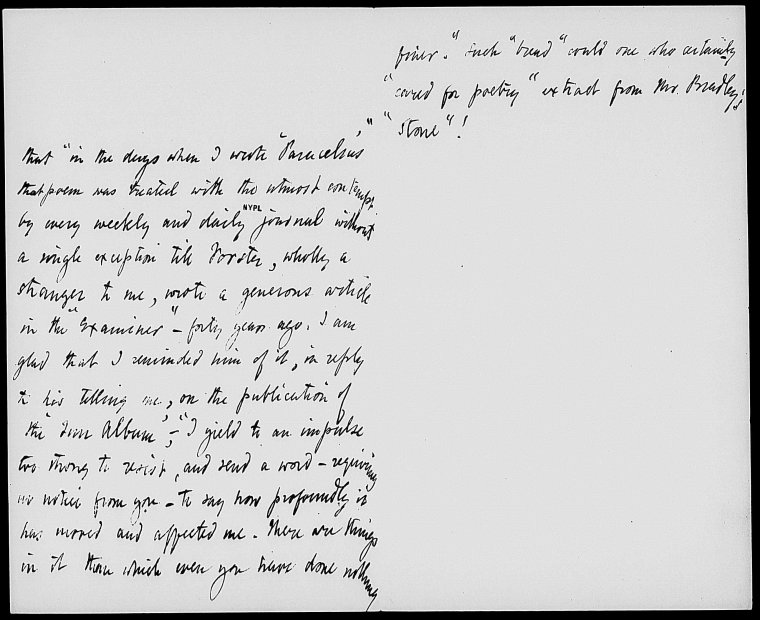 that "in the days when I wrote "Paracelsus",
that poem was treated with the utmost contempt
by every weekly and daily journal without
NYPL
a single exception till Forster, wholly a
stranger to me, wrote a generous article
in the "Examiner" – forty years ago. I am
glad that I reminded him of it, in reply
to his telling me, on the publication of
the "Inn Album", – "I yield to an impulse
too strong to resist, and send a word – requiring
no notice from you – to say how profoundly it
has moved and affected me. There are things
in it than which even you have done nothing
finer." Such "bread" could one who certainly
"cared for poetry" extract from Mr. Bradley's
"Stone"!